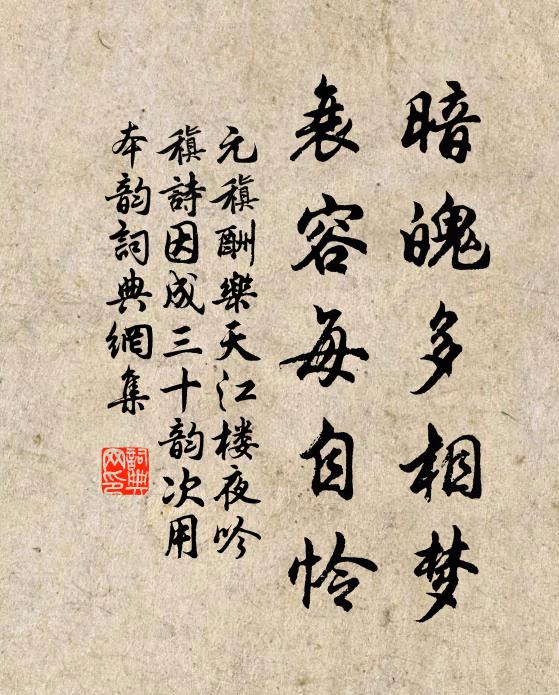 暗魄多相梦
衰容每自怜
元稹酬樂天江楼夜吟
稹詩因成三十韵次用
本韵詞典網集
詞典
网印